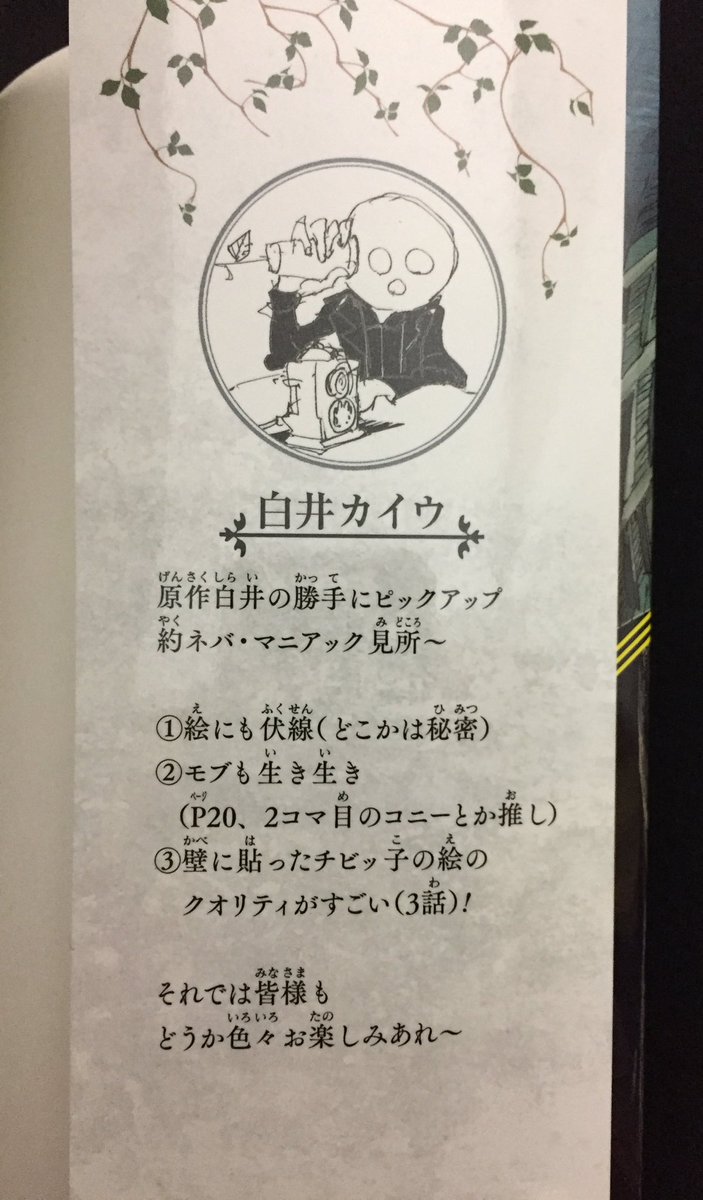 白井カイウ
原作白井の勝手にピックアップ
約ネバ・マニアック見所〜
①絵にも伏線(どこかは秘密)
②モブも生き生き
(P20、2コマ目のコニーとか推し)
③壁に貼ったチビッ子の絵の
クオリティがすごい(3話)!
それでは皆様も
どうか色々お楽しみあれ〜